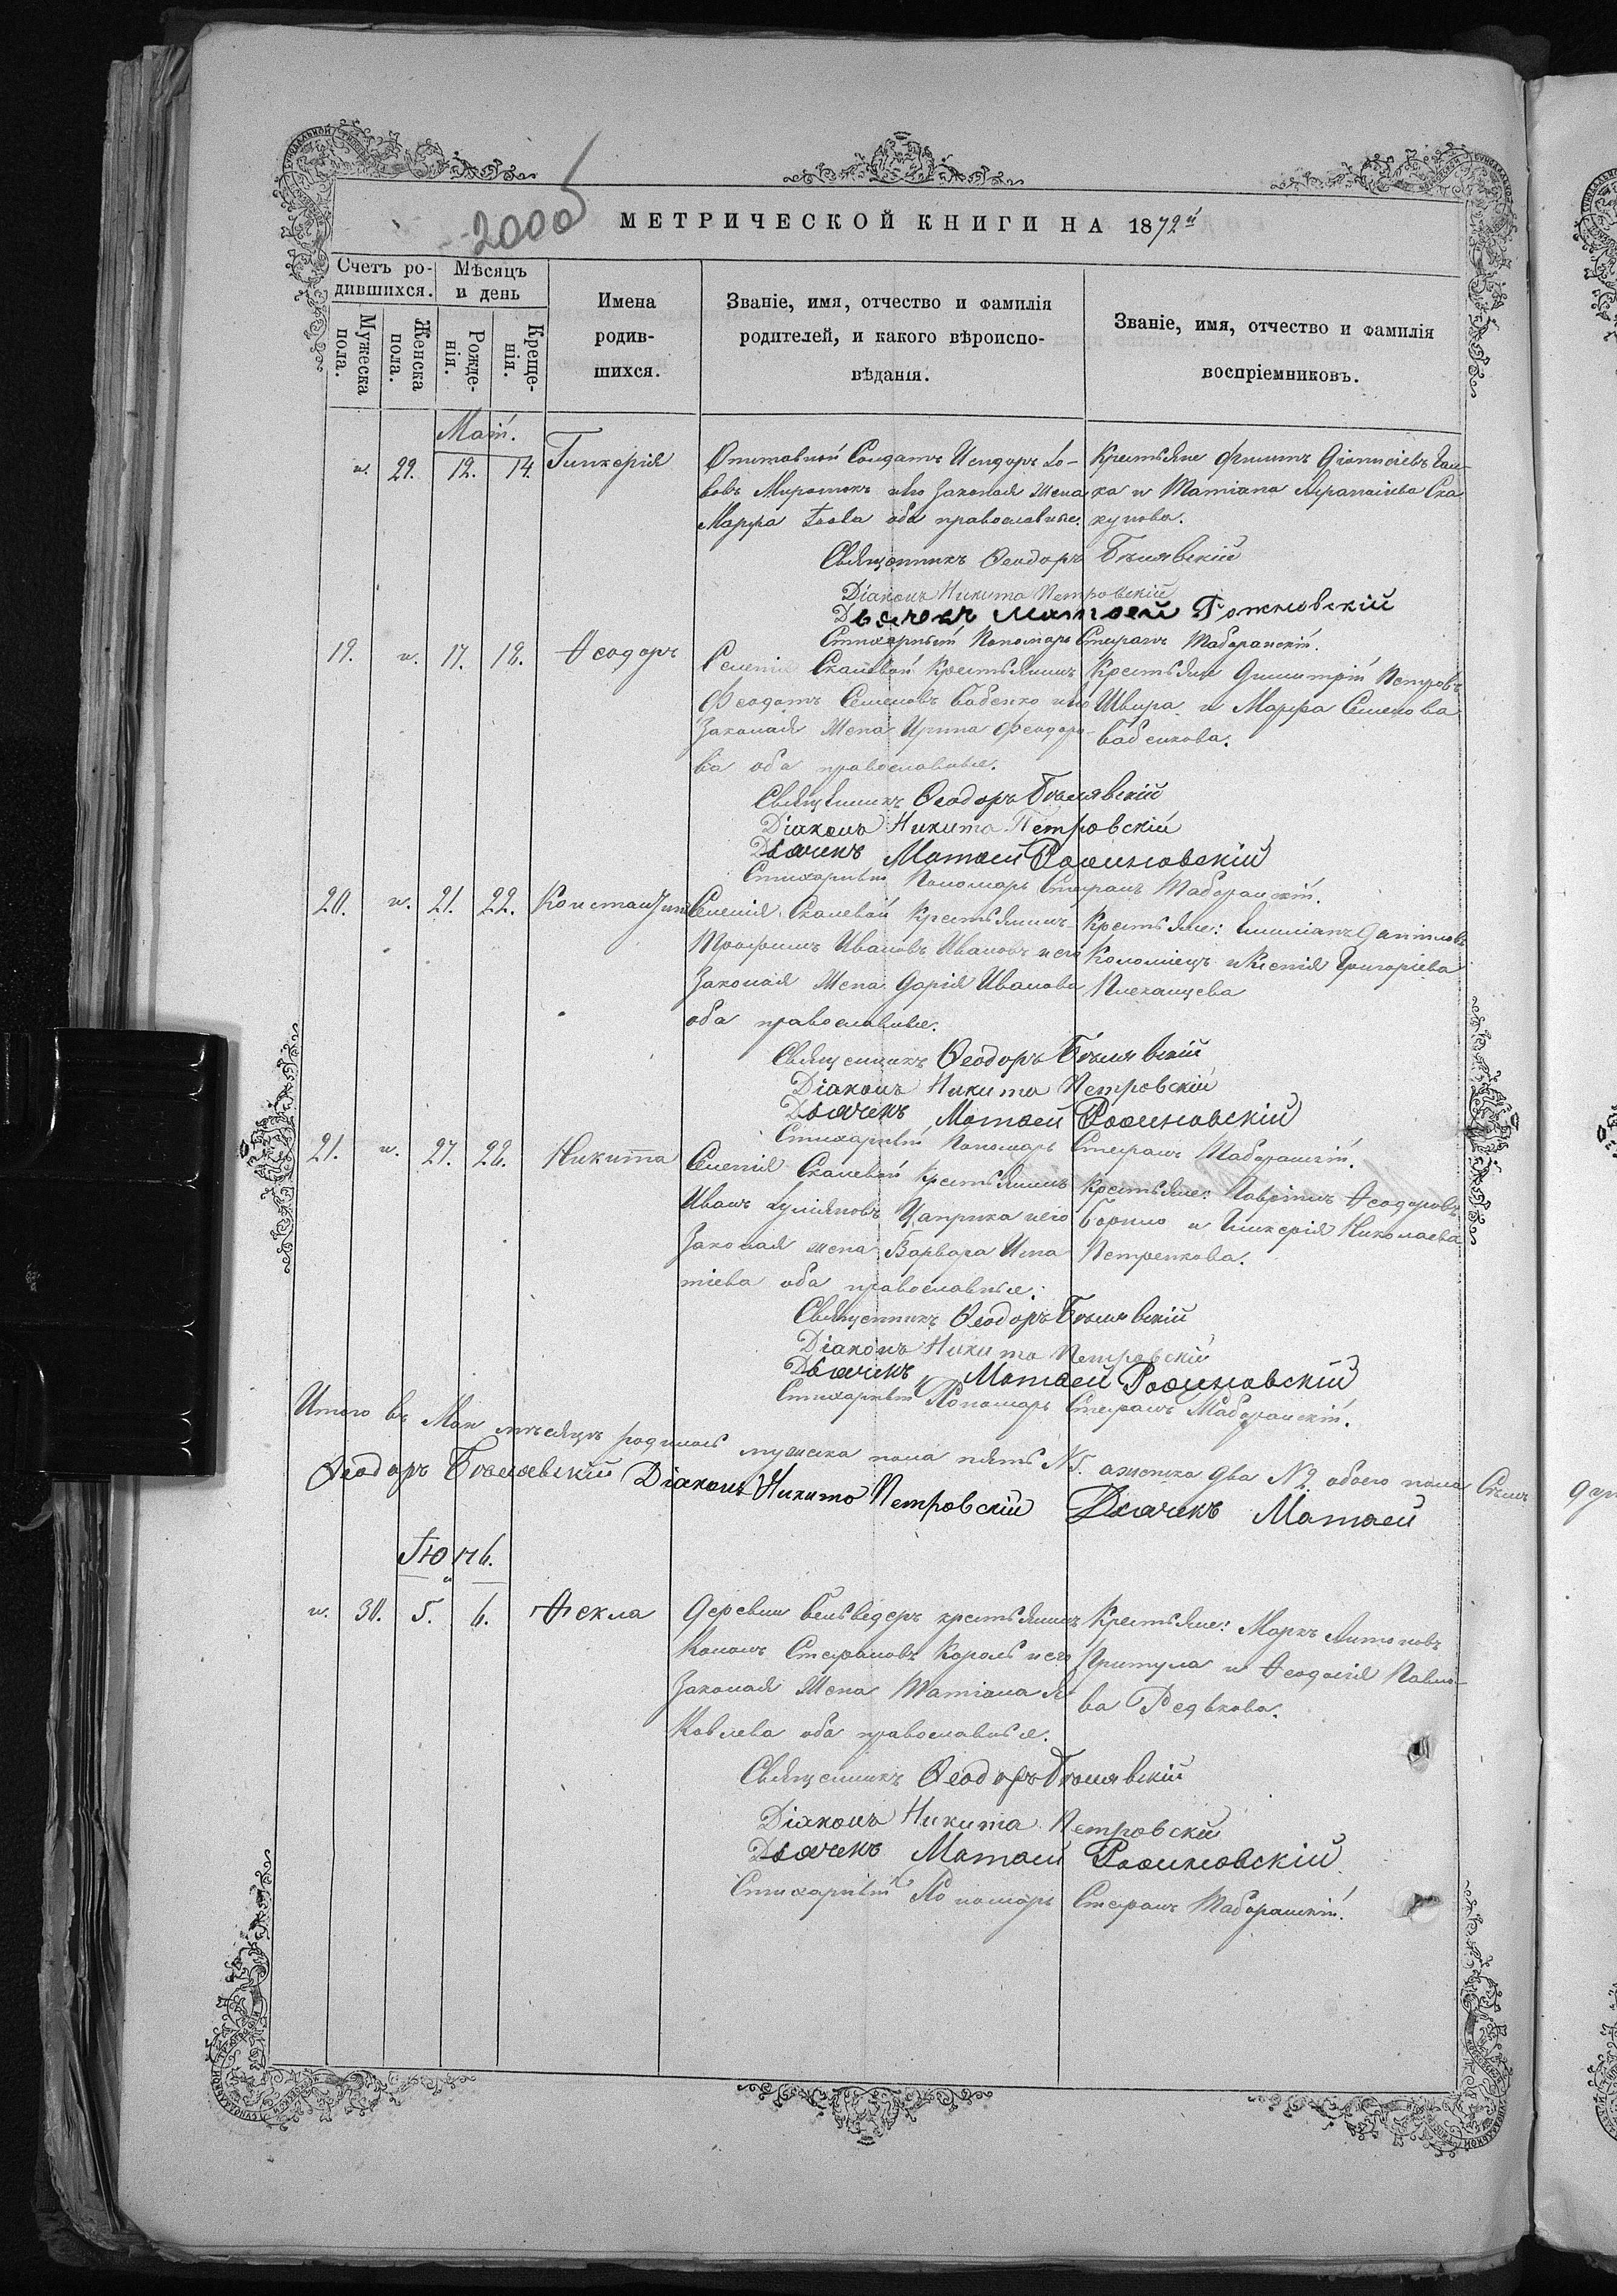 2000
МЕТРИЧЕСКОЙ КНИГИ НА 1872й
Счетъ ро-
дившихся.
Мѣсяцъ
и день
Мужеска
пола.
Женска
пола.
Рожде-
нія.
Креще-
нія.
Имена
родив-
шихся.
Званіе, имя, отчество и фамилія
родителей, и какого вѣроиспо-
вѣданія.
Званіе, имя, отчество и фамилія
воспріемниковъ.
Маій.
29. 12. 14. Гликерія
Отставной Солдатъ Исидоръ
Законая жена
Марфа оба православные.
Крестьяне
и Татіана
Священникъ Ѳеодоръ Бѣлявскій
Діаконъ Никита Петровскій
Дьячекъ Матѳей
Стихарный Пономарь Стефанъ
19. 17. 18. Ѳеодоръ
Селенія Скалевой Крестьянинъ
Феодотъ Семеновъ Бабенко и его
Законая Жена Ирина Феодоро-
ва оба православные.
Крестьяне Димитрій Петровъ
Швыра и Марфа Семенова
Бабенкова.
Священникъ Ѳеодоръ Бѣлявскій
Діаконъ Никита Петровскій
Дьячекъ Матѳей
Стихарный Пономарь Стефанъ
20. 21. 22. Константинъ
Селенія Скалевой Крестьянинъ
Трофимъ Ивановъ Ивановъ и его
Законая Жена Дарія Иванова
оба православные.
Крестьяне: Даниловъ
Коломіецъ и Ксенія Григоріева
Священникъ Ѳеодоръ Бѣлявскій
Діаконъ Никита Петровскій
Дьячекъ Матѳей
Стихарный Пономарь Стефанъ
21. 27. 28. Никита
Селенія Скалевой Крестьянинъ
Иванъ и его
Законая жена Варвара Игна-
тіева оба православные.
Крестьяне: Ѳеодоровъ
и Гликерія Николаева
Петренкова.
Священникъ Ѳеодоръ Бѣлявскій
Діаконъ Никита Петровскій
Дьячекъ Матѳей
Стихарный Пономарь Стефанъ
Итого въ Маи мѣсяцѣ родилось мужска пола пять №5. а женска два №2. обоего пола Семь
Ѳеодоръ Бѣлявскій Діаконъ Никита Петровскій Дьячекъ Матѳей
Іюнь.
30. 5. 6. Ѳекла
Деревни Бельведеръ крестьянинъ
Кононъ Стефановъ Король и его
Законая Жена Татіана Я-
ковлева оба православные.
Крестьяне: Маркъ Антоновъ
Притула и Ѳеодосія Павло-
ва Редькова.
Священникъ Ѳеодоръ Бѣлявскій
Діаконъ Никита Петровскій
Дьячекъ Матѳей
Стихарный Пономарь Стефанъ